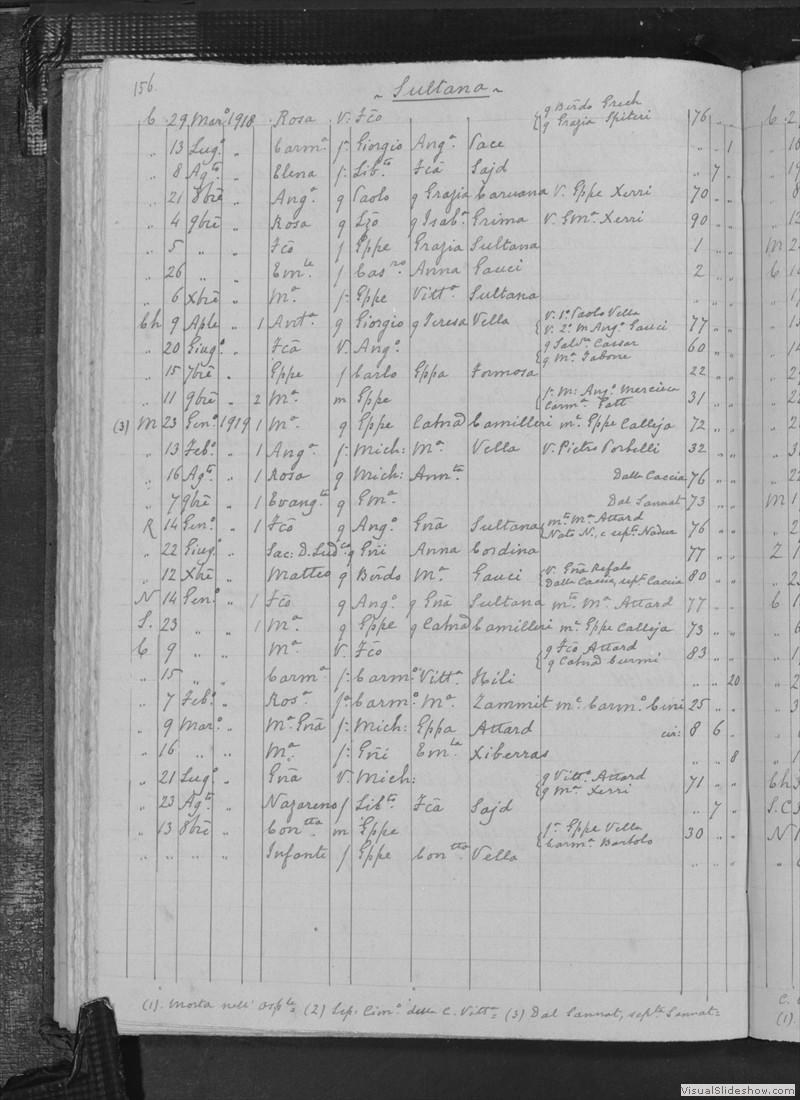 156.
~ Sultana ~
C 29 Mar.º 1918 Rosa V. Fcõ { q Birdo Grech 76 „ „
q Grazia Spiteri
„ 13 Lug.º „ Carm.ª f. Giorgio Ang.ª Pace „ „ 1
„ 8 Ag.to „ Elena f. Lib.to Fcã Sajd „ 7 „
„ 21 8brẽ „ Ang.ª q Paolo q Grazia Caruana V. Eppe Xerri 70 „ „
„ 4 9brẽ „ Rosa q Lzõ q Isab.ª Grima V. Gm.ª Xerri 90 „ „
„ 5 „ „ Fcõ f Eppe Grazia Sultana 1 „ „
„ 26 „ „ Em.le f Cas.ro Anna Gauci 2 „ „
„ 6 Xbrẽ „ M.ª f. Eppe Vitt.ª Sultana „ „ „
Ch 9 Aple „ 1 Ant.ª q Giorgio q Teresa Vella { V. 1.º Paolo Vella 77 „ „
V. 2.º m Ang.º Gauci
„ 20 Giug.º „ Fcã V. Ang.º { q Salv.º Cassar 60 „ „
q M.ª Tabone
„ 15 7brẽ „ Eppe f Carlo Eppa Formosa 22 „ „
„ 11 9brẽ „ 2 M.ª m Eppe { f.ª M: Ang.º Mercieca 31 „ „
Carm.ª Patt
(3) M 23 Gen.º 1919 1 M.ª q Eppe Catnã Camilleri m.ª Eppe Calleja 72 „ „
„ 13 Feb.º „ 1 Ang.ª f. Mich: M.ª Vella V. Pietro Portelli 32 „ „
„ 16 Ag.to „ 1 Rosa q Mich: Ann.ta Dalla Caccia 76 „ „
„ 7 9brẽ „ 1 Evang.ta q Gm.ª Dal Sannat 73 „ „
R 14 Gen.º „ 1 Fcõ q Ang.º Gnã Sultana { m.to M.ª Attard 76 „ „
Nato N., e sep.to Nadur
„ 22 Giug.º „ Sac: D. Lud.co q Gñi Anna Cordina 77 „ „
„ 12 Xbrẽ „ Matteo q Birdo M.ª Gauci { V. Gnã Refalo 80 „ „
Dalla Caccia, sep.to Caccia
N 14 Gen.º „ 1 Fcõ q Ang.º q Gnã Sultana m.to M.ª Attard 77 „ „
S. 23 „ „ 1 M.ª q Eppe q Catnã Camilleri m.ª Eppe Calleja 73 „ „
C 9 „ „ M.ª V. Fcõ { q Fcõ Attard 83 „ „
q Catnã Curmi
„ 15 „ „ Carm.ª f. Carm.º Vitt.ª Hili „ „ 20
„ 7 Feb.º „ Ros.ª f.ª Carm.º M.ª Zammit m.ª Carm.º Cini 25 „ „
„ 9 Mar.º „ M.ª Gnã f. Mich: Eppa Attard cir: 8 6 „
„ 16 „ „ M.ª f. Gñi Em.le Xiberras „ „ 8
„ 21 Lug.º „ Gnã V. Mich: { q Vitt.º Attard 71 „ „
q M.ª Xerri
„ 23 Ag.to „ Nazareno f Lib.to Fcã Sajd „ 7 „
„ 13 8brẽ „ Con.tta m Eppe { f.ª Eppe Vella 30 „ „
Carm.ª Bartolo
„ „ „ „ Infante f Eppe Con.tta Vella „ „ „
(1). Morta nell' Osp.le (2) Sep. Cim.º della C. Vitt.ª (3) Dal Sannat, sep.ta Sannat
VisualSlideshow.com